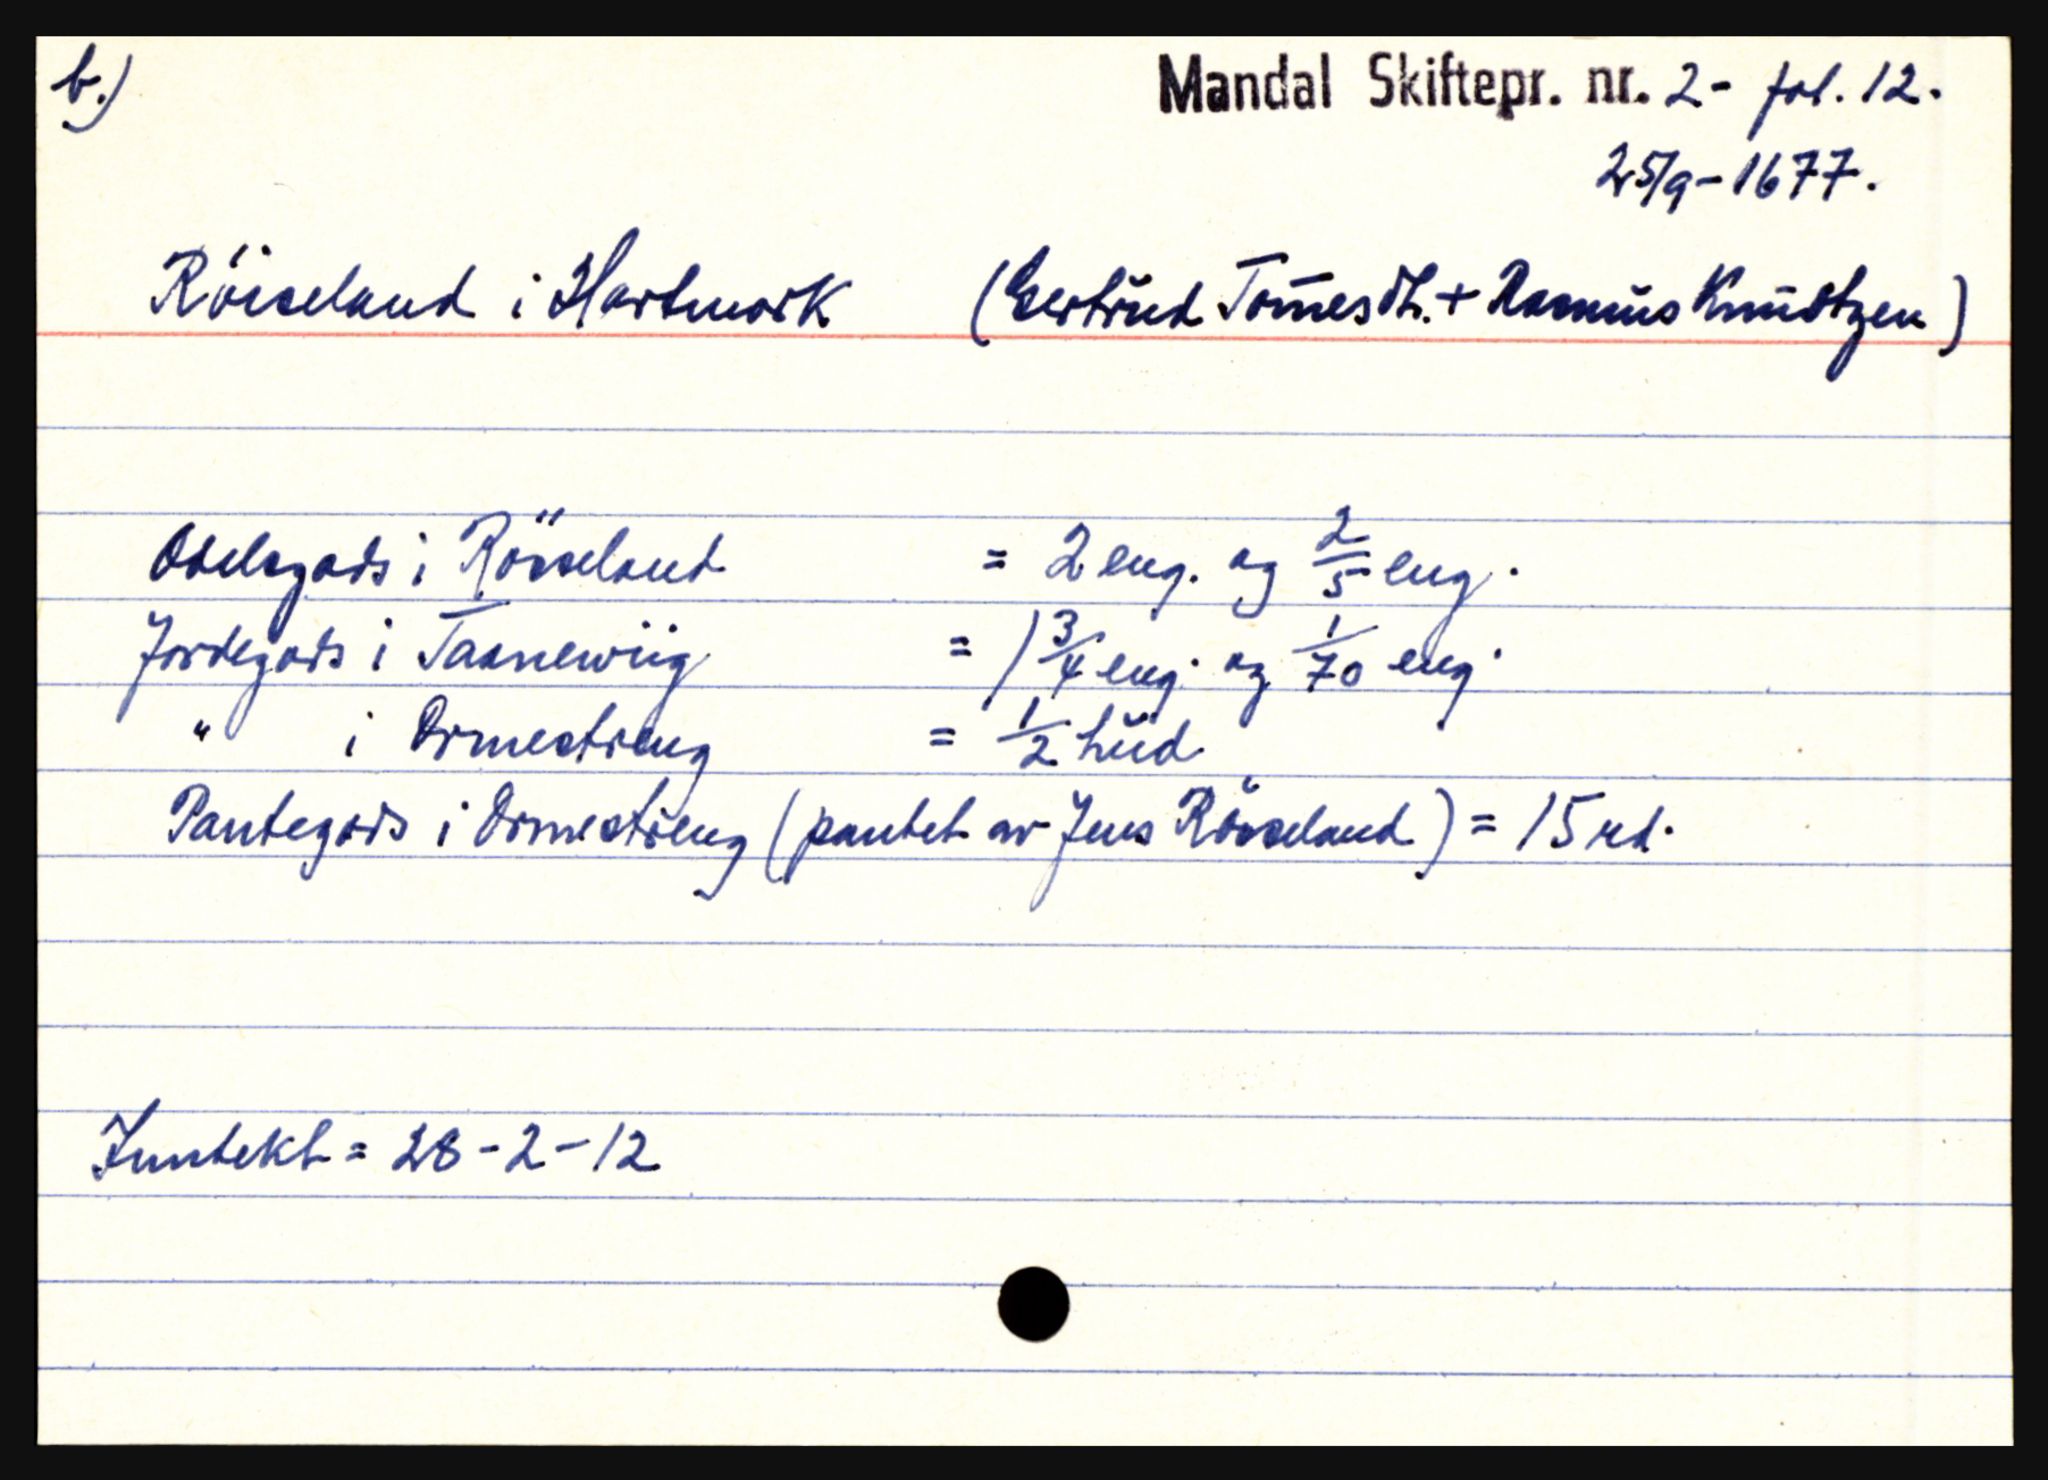 b.)
Mandal Skiftepr. nr. 2- fol. 12.
25/9-1677.
Röiseland i Hartmork (Gertrud Tomesdt. + Rasmus Knudtzen)
Odelsgods i Röiseland = 2 eng. og 2/5 eng.
Jordegods i Taanewiig = 1 3/4 eng. og 1/70 eng.
" i Ormestreng = 1/2 hud
Pantegods i Ormestreng (pantet av Jens Röiseland) = 15 rd.
Inntekt = 28-2-12